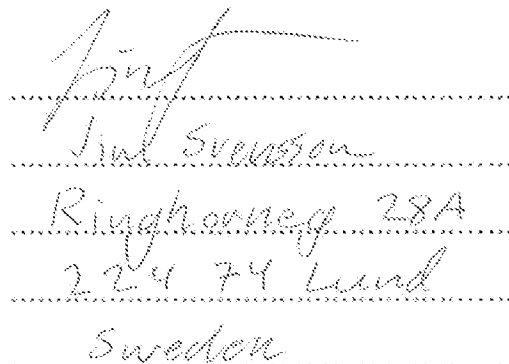 Jim Svensson
Ringhorneg 28A
224 74 Lund
Sweden